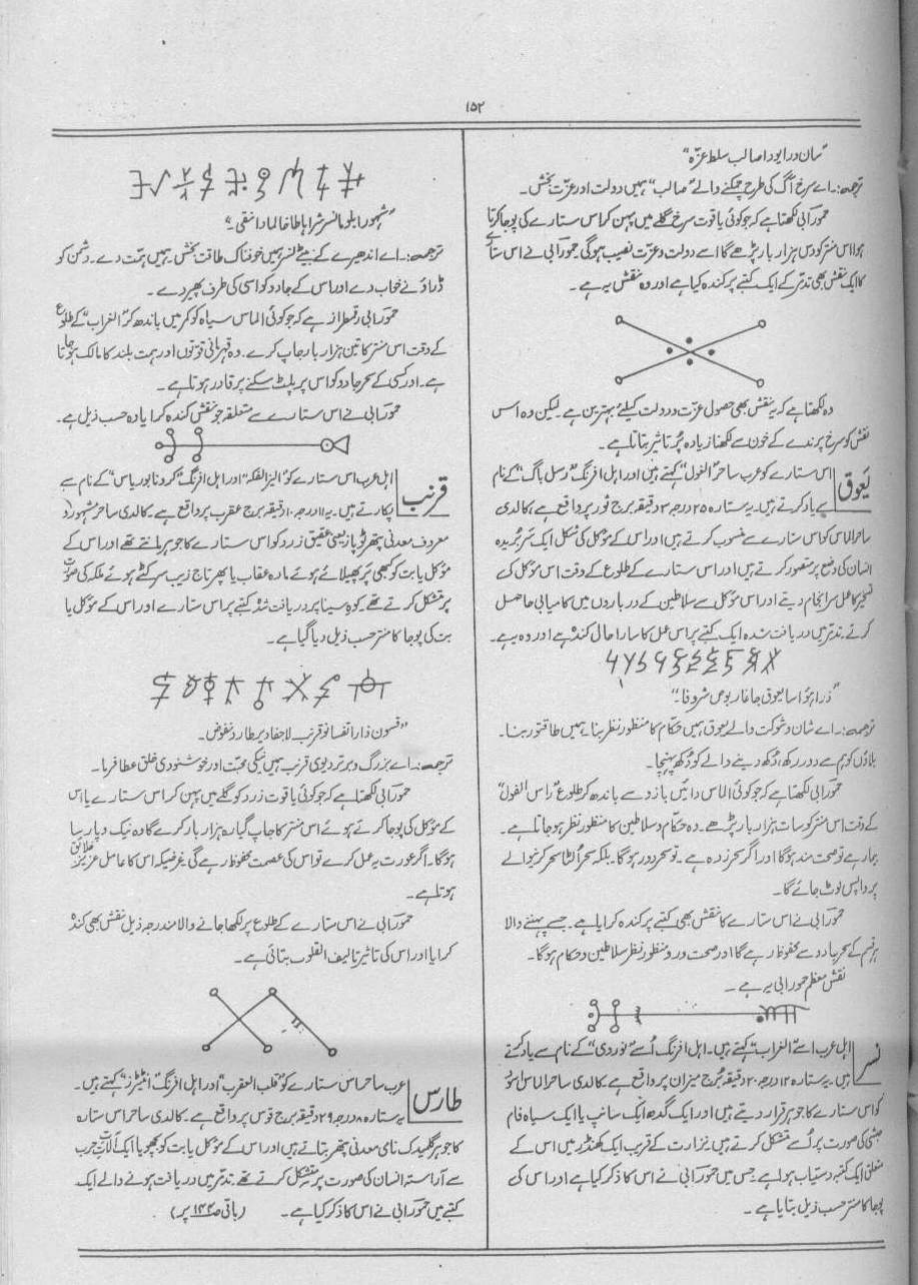 ۱۵۲
"سان درایودا صالب سلط عزّہ"
ترجمہ:۔ اے سرخ آگ کی طرح چمکنے والے "صالب" ہمیں دولت اور عزّت بخش۔
حمورابی لکھتا ہے کہ جو کوئی یاقوت سرخ گلے میں پہن کر اس ستارے کی پوجا کرتا
ہوا اس منتر کو دس ہزار بار پڑھے گا اسے دولت و عزّت نصیب ہوگی۔ حمورابی نے اس ستارے
کا ایک نقش بھی تدمر کے ایک کتبے پر کندہ کیا ہے اور وہ نقش یہ ہے۔
وہ لکھتا ہے کہ یہ نقش بھی حصول عزّت و دولت کیلئے بہترین ہے۔ لیکن وہ اس
نقش کو سرخ پرندے کے خون سے لکھنا زیادہ پُر تاثیر بتاتا ہے۔
یَعوق اس ستارے کو عرب ساحر "الغول" کہتے ہیں اور اہل افرنگ "رسل باگ" کے نام
سے یاد کرتے ہیں۔ یہ ستارہ ۲۵ درجہ ۳ دقیقہ برج ثور پر واقع ہے کالدی
ساحر الماس کو اس ستارے سے منسوب کرتے ہیں اور اس کے مؤکل کی شکل ایک سر بریدہ
انسان کی وضع پر متصور کرتے ہیں اور اس ستارے کے طلوع کے وقت اس مؤکل کے
تسخیر کا عمل سرانجام دیتے اور اس مؤکل سے سلاطین کے درباروں میں کامیابی حاصل
کرتے۔ تدمر میں دریافت شدہ ایک کتبے پر اس عمل کا سارا حال کندہ ہے اور وہ یہ ہے۔
"ذرا ہؤا سا یعوق جا غار بوص شروفا۔"
ترجمہ:۔ اے شان و شوکت والے یعوق ہمیں حکام کا منظور نظر بنا۔ ہمیں طاقتور بنا۔
بلاؤں کو ہم سے دور رکھ۔ دُکھ دینے والے کو دُکھ پہنچا۔
حمورابی لکھتا ہے کہ جو کوئی الماس دائیں بازو سے باندھ کر طلوع "راس الغول"
کے وقت اس منتر کو سات ہزار بار پڑھے۔ وہ حکام و سلاطین کا منظور نظر ہوجاتا ہے۔
بیمار ہے تو صحت مند ہوگا اور اگر سحر زدہ ہے۔ تو سحر دور ہوگا۔ بلکہ سحر اُلٹا سحر کرنیوالے
پر واپس لوٹ جائے گا۔
حمورابی نے اس ستارے کا نقش بھی کتبے پر کندہ کرایا ہے۔ جسے پہننے والا
ہر قسم کے سحر جادو سے محفوظ رہے گا اور صحت ور و منظور نظر سلاطین و حکام ہوگا۔
نقش معظم حمورابی یہ ہے۔
نسر اہل عرب اسے "الغراب" کہتے ہیں۔ اہل افرنگ اُسے "نوردی" کے نام سے یاد کرتے
ہیں۔ یہ ستارہ ۱۲ درجہ ۲۰ دقیقہ بُرج میزان پر واقع ہے کالدی ساحر الماس اسود
کو اس ستارے کا جوہر قرار دیتے ہیں اور ایک گدھ ایک سانپ یا ایک سیاہ فام
حبشی کی صورت پر اُسے متشکل کرتے ہیں۔ نزارت کے قریب ایک کھنڈر میں اس کے
متعلق ایک کتبہ دستیاب ہوا ہے جس میں حمورابی نے اس کا ذکر کیا ہے اور اس کی
پوجا کا منتر حسب ذیل بتایا ہے۔
"شہورا یلوہا نسر شرا ہا طا خا لما دا نقی۔"
ترجمہ:۔ اے اندھیرے کے بیٹے نسر ہمیں خوفناک طاقت بخش۔ ہمیں ہمت دے۔ دشمن کو
ڈراؤنے خواب دے اور اس کے جادو کو اسی کی طرف پھیر دے۔
حمورابی رقمطراز ہے کہ جو کوئی الماس سیاہ کو کمر میں باندھ کر "الغراب" کے طلوع
کے وقت اس منتر کا تین ہزار بار جاپ کرے۔ وہ قہربانی قوتوں اور ہمت بلند کا مالک ہوجاتا
ہے۔ اور کسی کے سحر جادو کو اس پر پلٹ سکنے پر قادر ہوتا ہے۔
حمورابی نے اس ستارے سے متعلقہ جو نقش کندہ کرایا وہ حسب ذیل ہے۔
قرنب اہل عرب اس ستارے کو "الیز الفکہ" اور اہل افرنگ "کرونا بوریاس" کے نام سے
پکارتے ہیں۔ یہ ۱۱ درجہ ۱۰ دقیقہ برج عقرب پر واقع ہے۔ کالدی ساحر مشہور و
معروف معدنی پتھر ٹوپاز یعنی عقیق زرد کو اس ستارے کا جوہر مانتے تھے اور اس کے
مؤکل یا بت کو کبھی پر پھیلائے ہوئے مادہ عقاب یا پھر تاج زیب سر کئے ہوئے ملکہ کی صورت
پر متشکل کرتے تھے۔ کوہ سینا پر دریافت شدہ کتبے پر اس ستارے اور اس کے مؤکل یا
بت کی پوجا کا منتر حسب ذیل دیا گیا ہے۔
"فسون ذارا تفسا نو قرنب۔ لاجفاد برطارد نغوض۔
ترجمہ:۔ اے بزرگ و برتر دیوی قرنب ہمیں نیکی محبت اور خوشنودی خلق عطا فرما۔
حمورابی لکھتا ہے کہ جو کوئی یاقوت زرد کو گلے میں پہن کر اس ستارے یا اس
کے مؤکل کی پوجا کرتے ہوئے اس منتر کا جاپ گیارہ ہزار بار کرے گا وہ نیک و پارسا
ہوگا۔ اگر عورت یہ عمل کرے تو اس کی عصمت محفوظ رہے گی غرضیکہ اس کا عامل عزیز خلائق
ہوتا ہے۔
حمورابی نے اس ستارے کے طلوع پر لکھا جانے والا مندرجہ ذیل نقش بھی کندہ
کرایا اور اس کی تاثیر تالیف القلوب بتائی ہے۔
طارس عرب ساحر اس ستارے کو "قلب العقرب" اور اہل افرنگ "انٹیٹرز" کہتے ہیں۔
یہ ستارہ ۸ درجہ ۲۹ دقیقہ برج قوس پر واقع ہے۔ کالدی ساحر اس ستارہ
کا جوہر گلیدک نامی معدنی پتھر بتاتے ہیں اور اس کے مؤکل یا بت کو بچھو یا ایک آلات حرب
سے آراستہ انسان کی صورت پر متشکل کرتے تھے۔ تدمر میں دریافت ہونے والے ایک
کتبے میں حمورابی نے اس کا ذکر کیا ہے۔ (باقی صـ۱۴۲ پر)